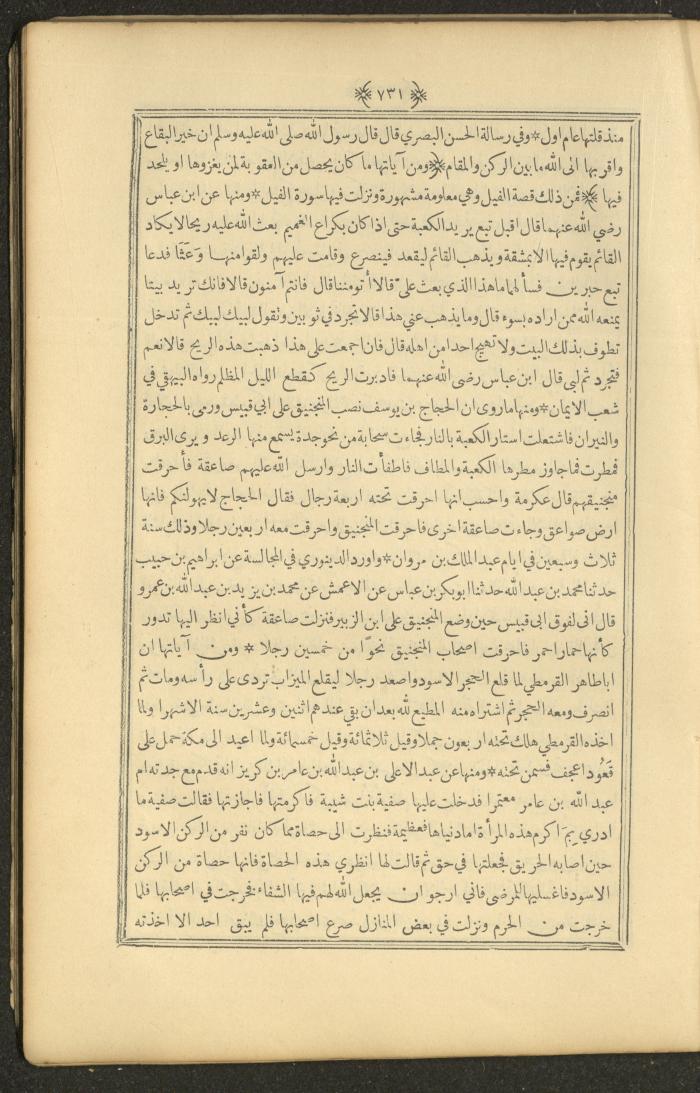 ﴿ ٧٣١ ﴾
منذ قلتها عام اول * وفي رسالة الحسن البصري قال قال رسول الله صلى الله عليه وسلم ان خير البقاع
واقربها الى الله ما بين الركن والمقام ﴿ ومن آياتها ما كان يحصل من العقوبة لمن يغزوها او يلحد
فيها ﴾ فمن ذلك قصة الفيل وهي معلومة مشهورة ونزلت فيها سورة الفيل * ومنها عن ابن عباس
رضي الله عنهما قال اقبل تبع يريد الكعبة حتى اذا كان بكراع الغميم بعث الله عليه ريحا لا يكاد
القائم يقوم فيها الا بمشقة ويذهب القائم ليقعد فينصرع وقامت عليهم ولقوا منها وَعَثًا فدعا
تبع حبرين فسألهما ما هذا الذي بعث عليّ قالا أتومننا قال فانتم آمنون قالا فانك تريد بيتا
يمنعه الله ممن اراده بسوء قال وما يذهب عني هذا قالا تجرد في ثوبين وتقول لبيك لبيك ثم تدخل
تطوف بذلك البيت ولا تهيج احدا من اهله قال فان اجمعت على هذا ذهبت هذه الريح قالا نعم
فتجرد ثم لبى قال ابن عباس رضى الله عنهما فادبرت الريح كقطع الليل المظلم رواه البيهقي في
شعب الايمان * ومنها ما روى ان الحجاج بن يوسف نصب المنجنيق على ابي قبيس ورمى بالحجارة
والنيران فاشتعلت استار الكعبة بالنار فجاءت سحابة من نحو جدة يسمع منها الرعد ويرى البرق
فمطرت فما جاوز مطرها الكعبة والمطاف فاطفأت النار وارسل الله عليهم صاعقة فأحرقت
منجنيقهم قال عكرمة واحسب انها احرقت تحته اربعة رجال فقال الحجاج لا يهولنكم فانها
ارض صواعق وجاءت صاعقة اخرى فاحرقت المنجنيق واحرقت معه اربعين رجلا وذلك سنة
ثلاث وسبعين في ايام عبد الملك بن مروان * واورد الدينوري في المجالسة عن ابراهيم بن حبيب
حدثنا محمد بن عبد الله حدثنا ابو بكر بن عباس عن الاعمش عن محمد بن يزيد بن عبد الله بن عمرو
قال انى لفوق ابى قبيس حين وضع المنجنيق على ابن الزبير فنزلت صاعقة كأني انظر اليها تدور
كأنها حمار احمر فاحرقت اصحاب المنجنيق نحوًا من خمسين رجلا * ومن آياتها ان
ابا طاهر القرمطي لما قلع الحجر الاسود واصعد رجلا ليقلع الميزاب تردى على رأسه ومات ثم
انصرف ومعه الحجر ثم اشتراه منه المطيع لله بعد ان بقي عندهم اثنين وعشرين سنة الا شهرا ولما
اخذه القرمطي هلك تحته اربعون جملا وقيل ثلاثمائة وقيل خمسمائة ولما اعيد الى مكة حمل على
قَعُود اعجف فسمن تحته * ومنها عن عبد الاعلى بن عبد الله بن عامر بن كريز انه قدم مع جدته ام
عبد الله بن عامر معتمرا فدخلت عليها صفية بنت شيبة فاكرمتها فاجازتها فقالت صفية ما
ادري بمَ اكرم هذه المرأة اما دنياها فعظيمة فنظرت الى حصاة مما كان نفر من الركن الاسود
حين اصابه الحريق فجعلتها في حق ثم قالت لها انظري هذه الحصاة فانها حصاة من الركن
الاسود فاغسليها للمرضى فاني ارجو ان يجعل الله لهم فيها الشفاء فخرجت في اصحابها فلما
خرجت من الحرم ونزلت في بعض المنازل صرع اصحابها فلم يبق احد الا اخذته